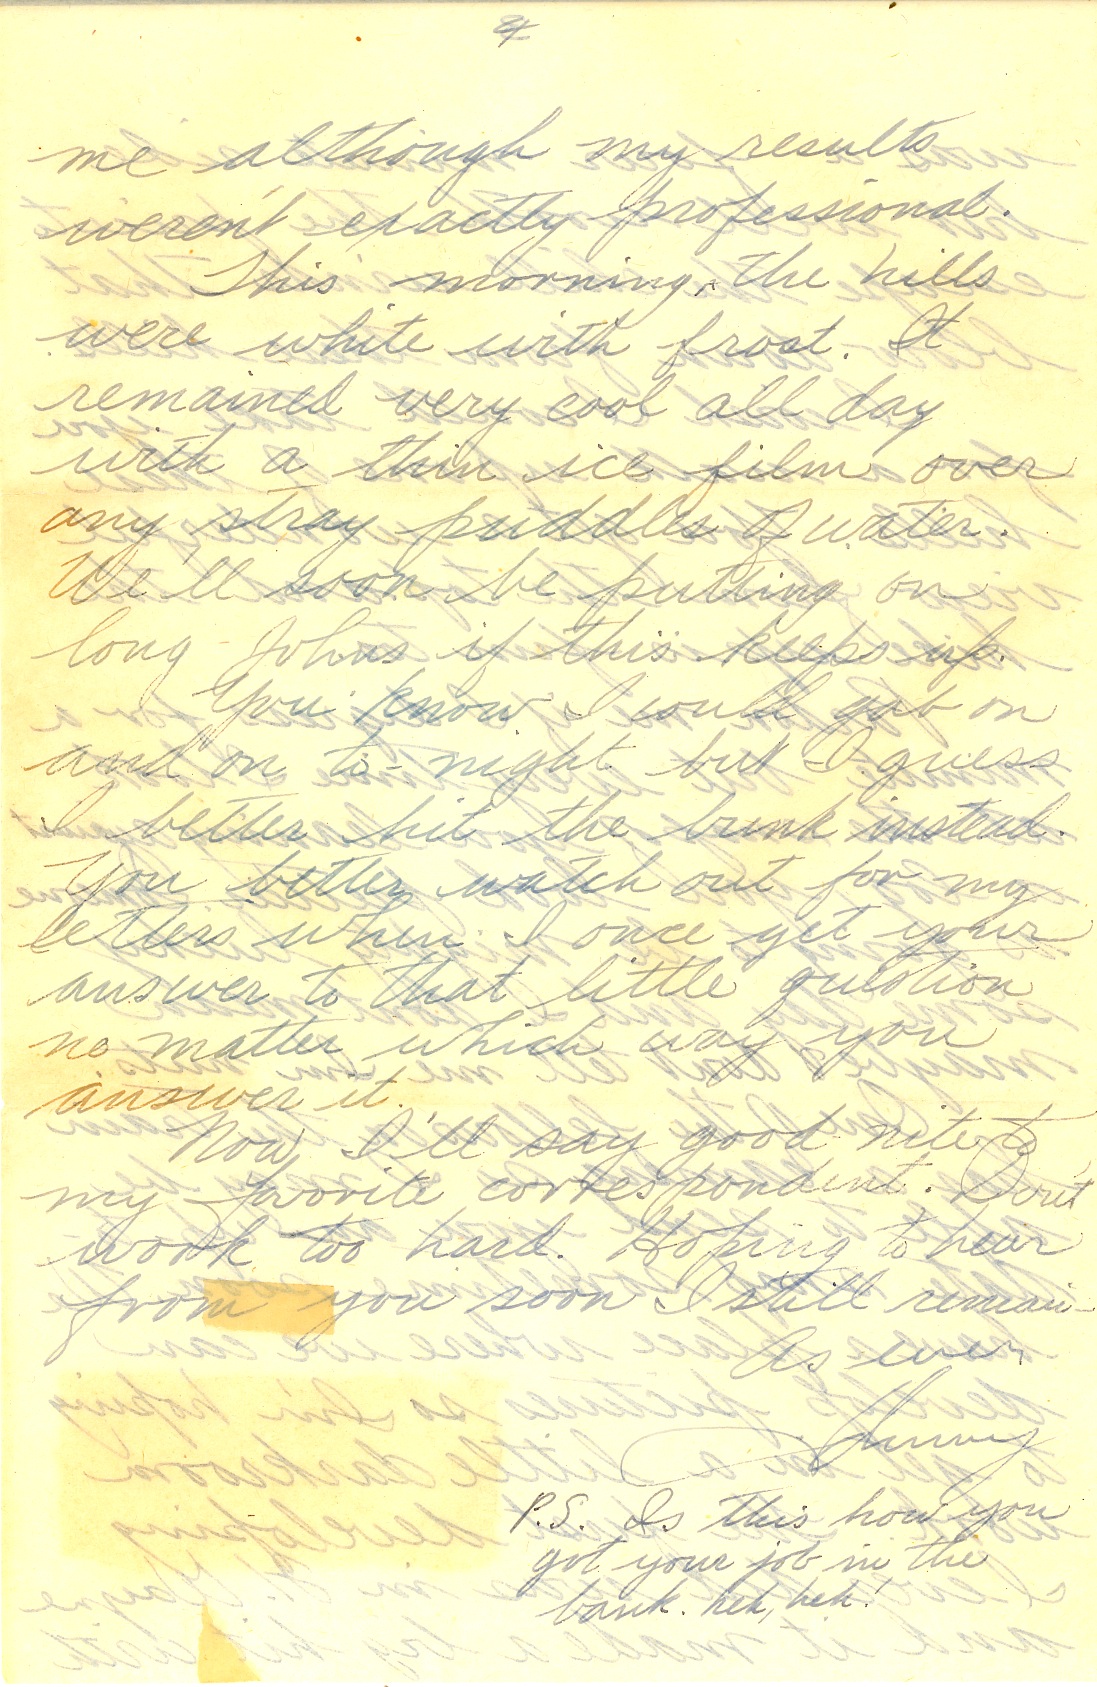 4
me although my results
weren't exactly professional.
This morning, the hills
were white with frost. It
remained very cool all day
with a thin ice film over
any stray puddles of water.
We'll soon be putting on
long Johns if this keeps up.
You know I could gab on
and on to-night but I guess
I better hit the bunk instead.
You better watch out for my
letters when I once get your
answer to that little question
no matter which way you
answer it.
Now I'll say good nite to
my favorite correspondent. Don't
work too hard. Hoping to hear
from you soon I still remain-
As ever,
P.S. Is this how you
got your job in the
bank. heh, heh!